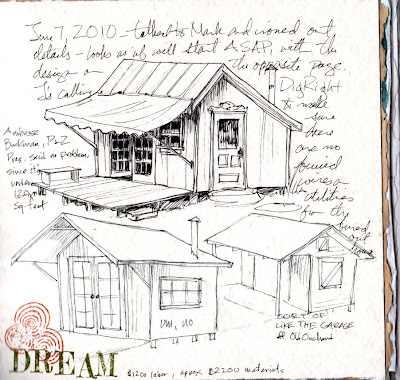 June 7, 2010 - talked to Mark and ironed out
details - looks as if we'll start ASAP, with the
design on the opposite page.
J's calling
DigRight
to make
sure
there
are no
buried
wires or
utilities
Ambrose
Buckman, P&Z
said no problem,
since it's
under
Sq. feet
um, no
SORT OF
LIKE THE GARAGE
Old Orchard
DREAM
$1200 labor, aprox $2200 materials